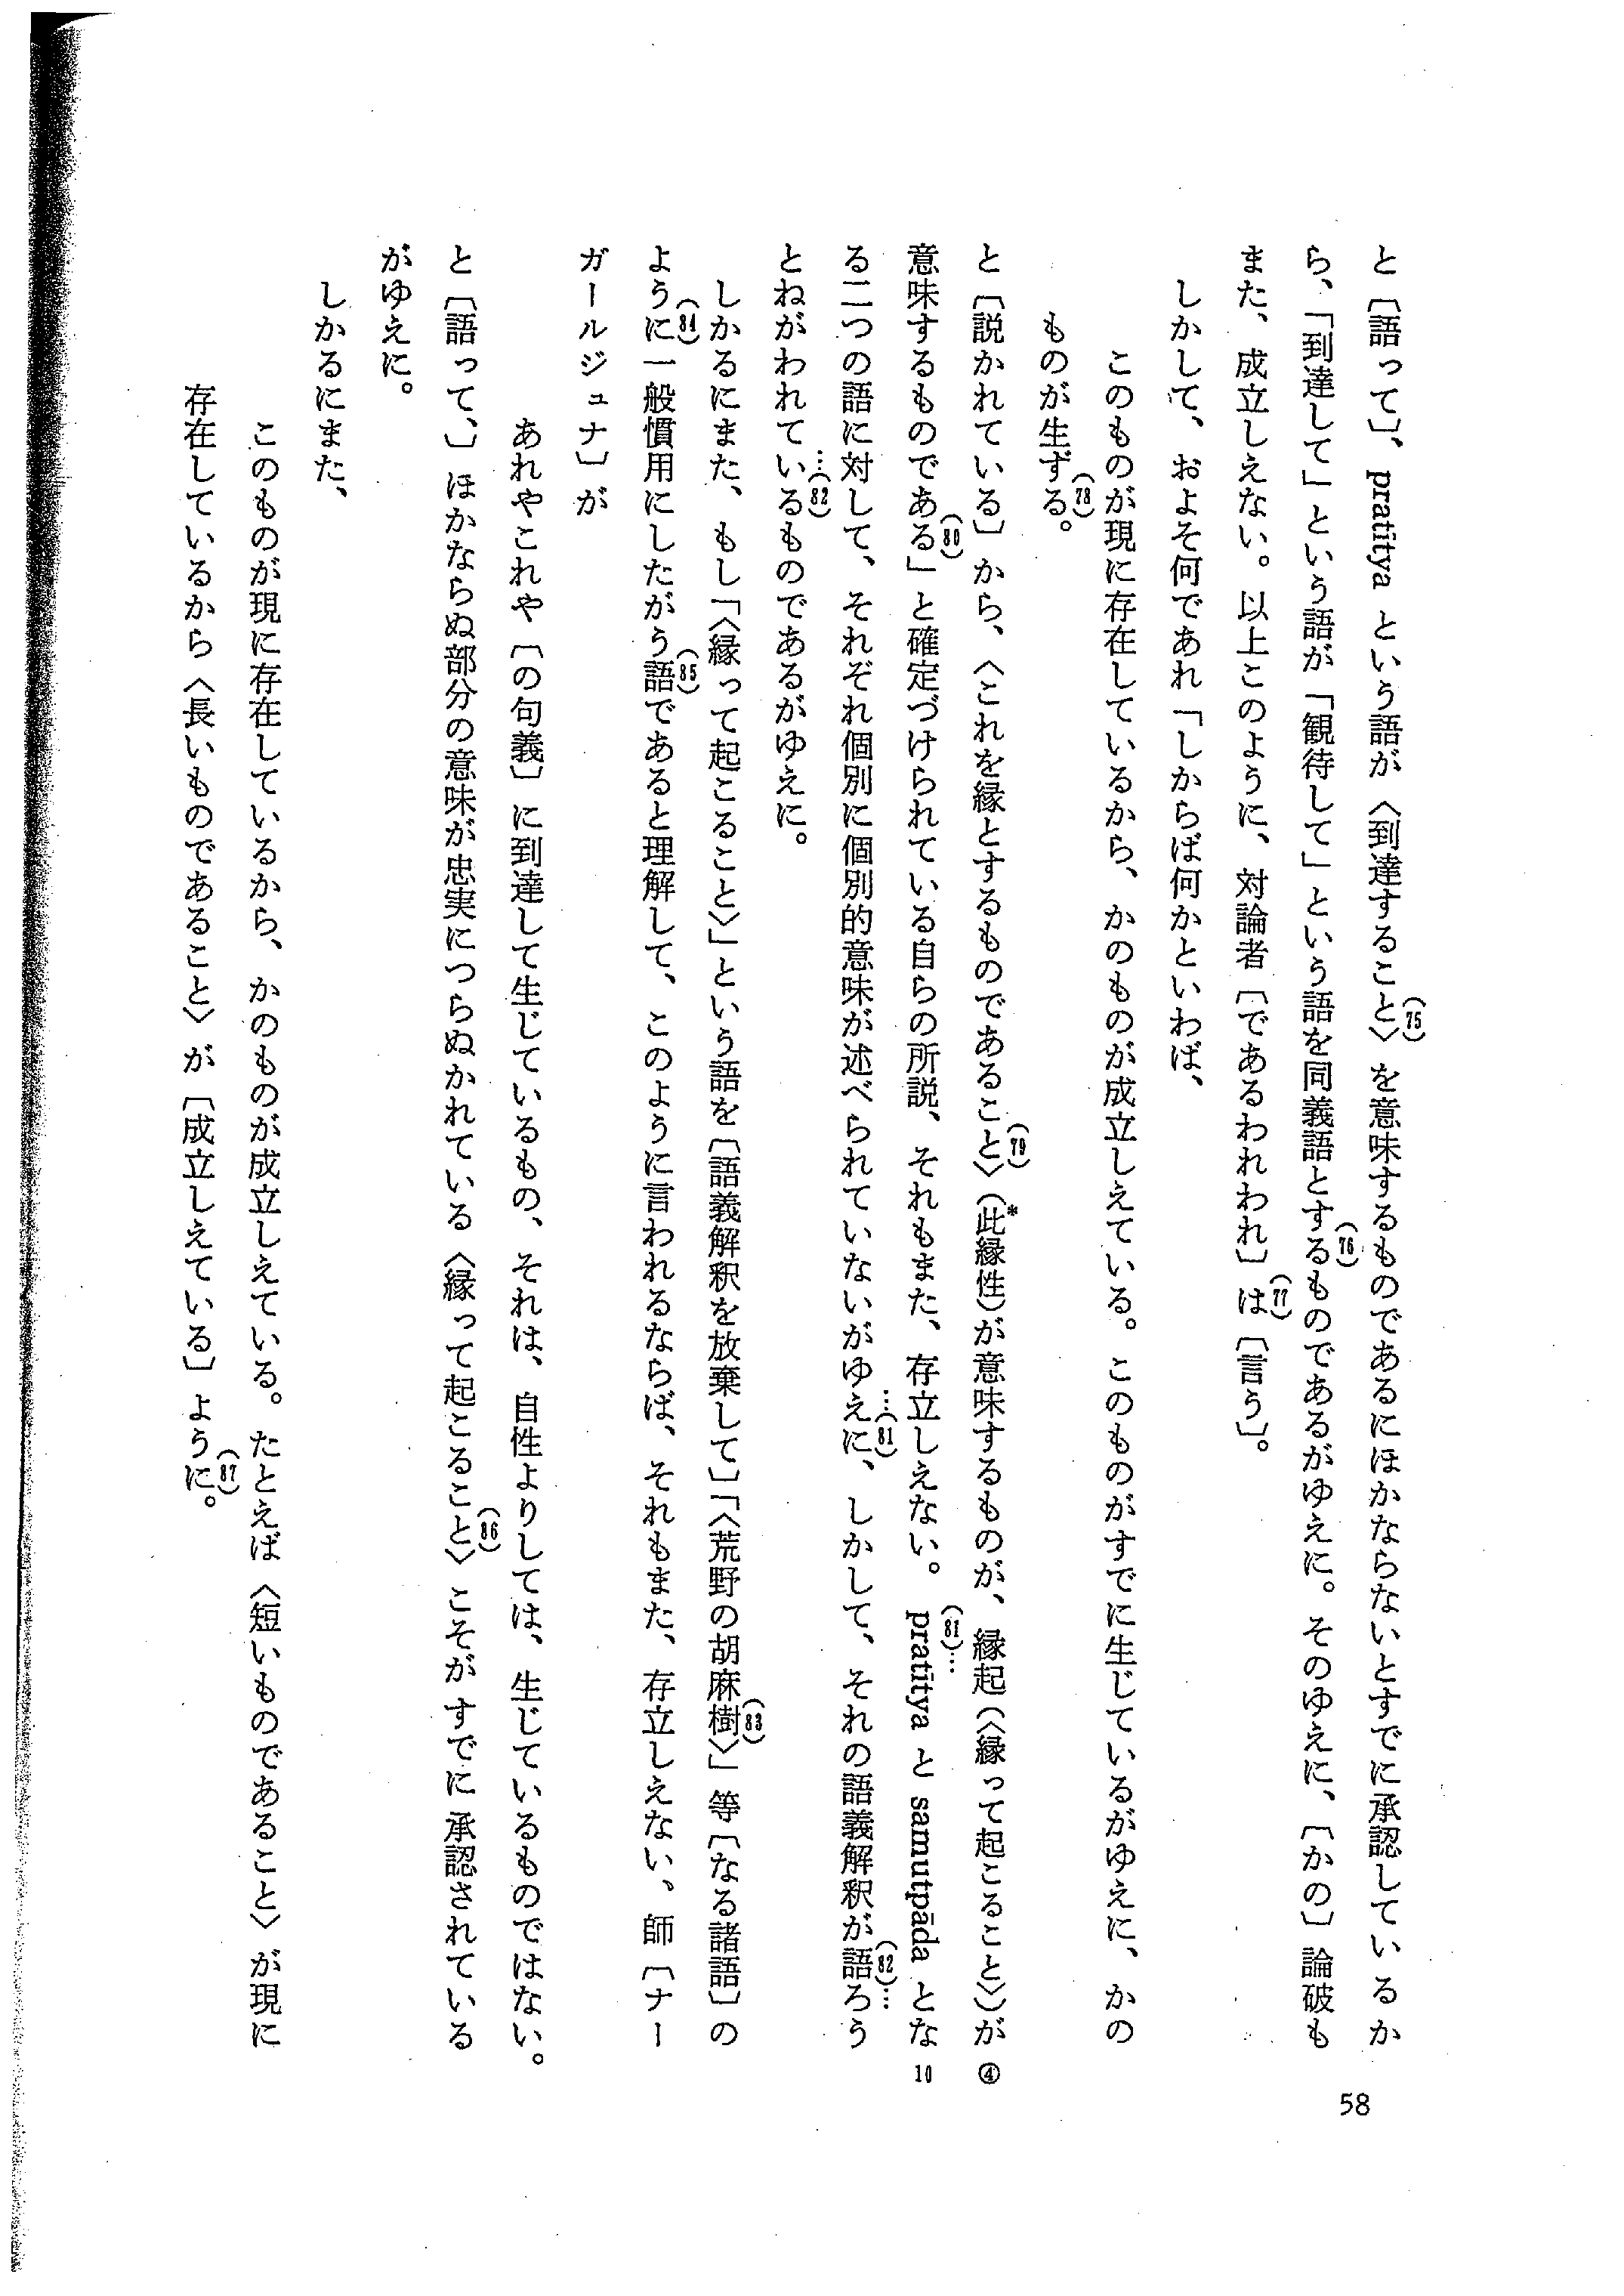 と〔語って〕、pratītya という語が〈到達すること〉(75)を意味するものであるにほかならないとすでに承認しているか
ら、「到達して」という語が「観待して」という語を同義語とする(76)ものであるがゆえに。そのゆえに、〔かの〕論破も
また、成立しえない。以上このように、対論者〔であるわれわれ〕は(77)〔言う〕。
しかして、およそ何であれ「しからば何かといわば、
このものが現に存在しているから、かのものが成立しえている。このものがすでに生じているがゆえに、かの
ものが生ずる(78)。
と〔説かれている〕から、〈これを縁とするものであること〉(79)(此縁性)*が意味するものが、縁起(〈縁って起こること〉)が ④
意味するものである(80)」と確定づけられている自らの所説、それもまた、存立しえない。(81)…pratītya と samutpāda とな 10
る二つの語に対して、それぞれ個別に個別的意味が述べられていないがゆえに…(81)、しかして、それの語義解釈が(82)…語ろう
とねがわれている…(82)ものであるがゆえに。
しかるにまた、もし「〈縁って起こること〉」という語を〔語義解釈を放棄して〕「〈荒野の胡麻樹(83)〉」等〔なる諸語〕の
ように(84)一般慣用にしたがう語(85)であると理解して、このように言われるならば、それもまた、存立しえない、師〔ナー
ガールジュナ〕が
あれやこれや〔の句義〕に到達して生じているもの、それは、自性よりしては、生じているものではない。
と〔語って、〕ほかならぬ部分の意味が忠実につらぬかれている〈縁って起こること〉(86)こそがすでに承認されている
がゆえに。
しかるにまた、
このものが現に存在しているから、かのものが成立しえている。たとえば〈短いものであること〉が現に
存在しているから〈長いものであること〉が〔成立しえている〕ように(87)。
58